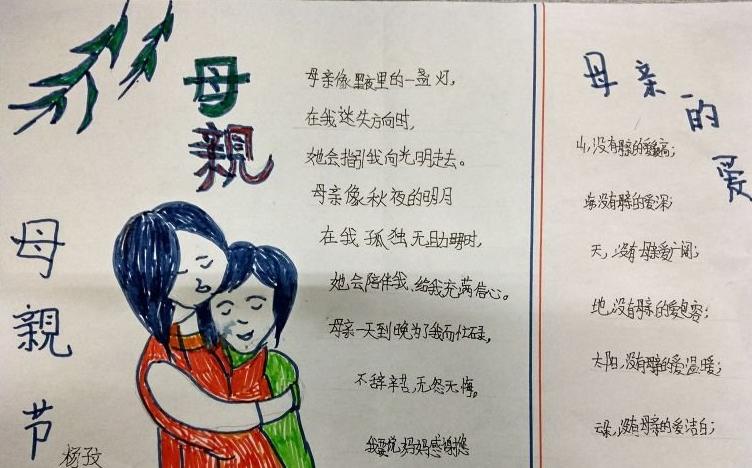 母親
母親节
杨孜
母亲像黑夜里的一盏灯,
在我迷失方向时,
她会指引我向光明走去。
母亲像秋夜的明月
在我孤独无助时,
她会陪伴我,给我充满信心。
母亲一天到晚为了我而忙碌,
不辞辛苦,无怨无悔。
我要说妈妈感谢您
母亲的爱
山,没有母亲的爱高;
海没有母亲的爱深;
天,没有母亲爱广阔;
地,没有母亲的爱包容;
太阳,没有母亲的爱温暖;
云朵,没有母亲的爱洁白;